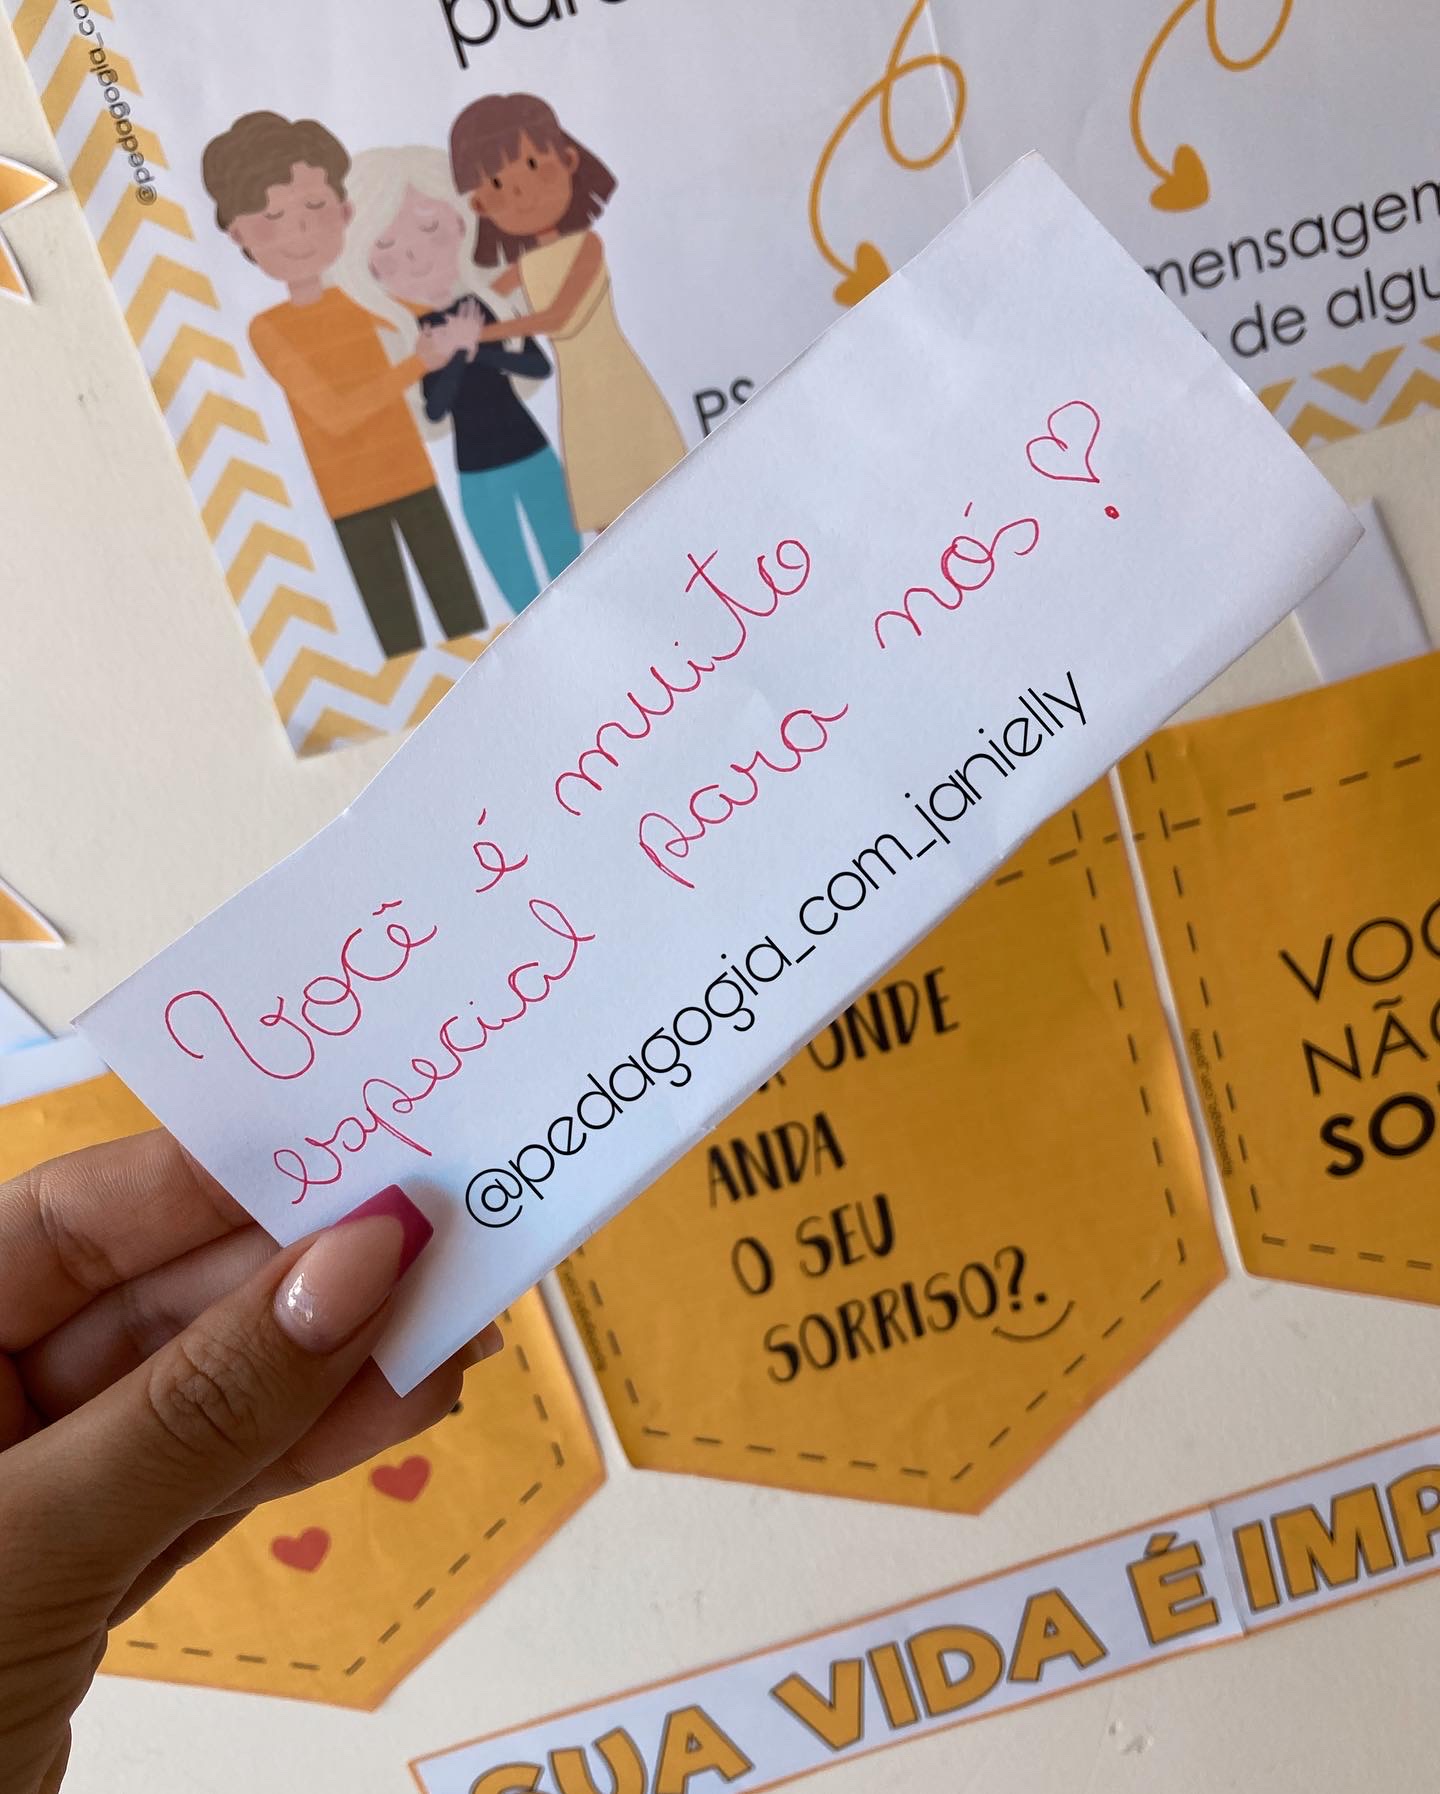 @pedagogia_co
mensagem
de algu
PS
Você é muito
especial para nós!
@pedagogia_com_janielly
ONDE
ANDA
O SEU
SORRISO?
VOC
NÃO
SO
SUA VIDA É IMP